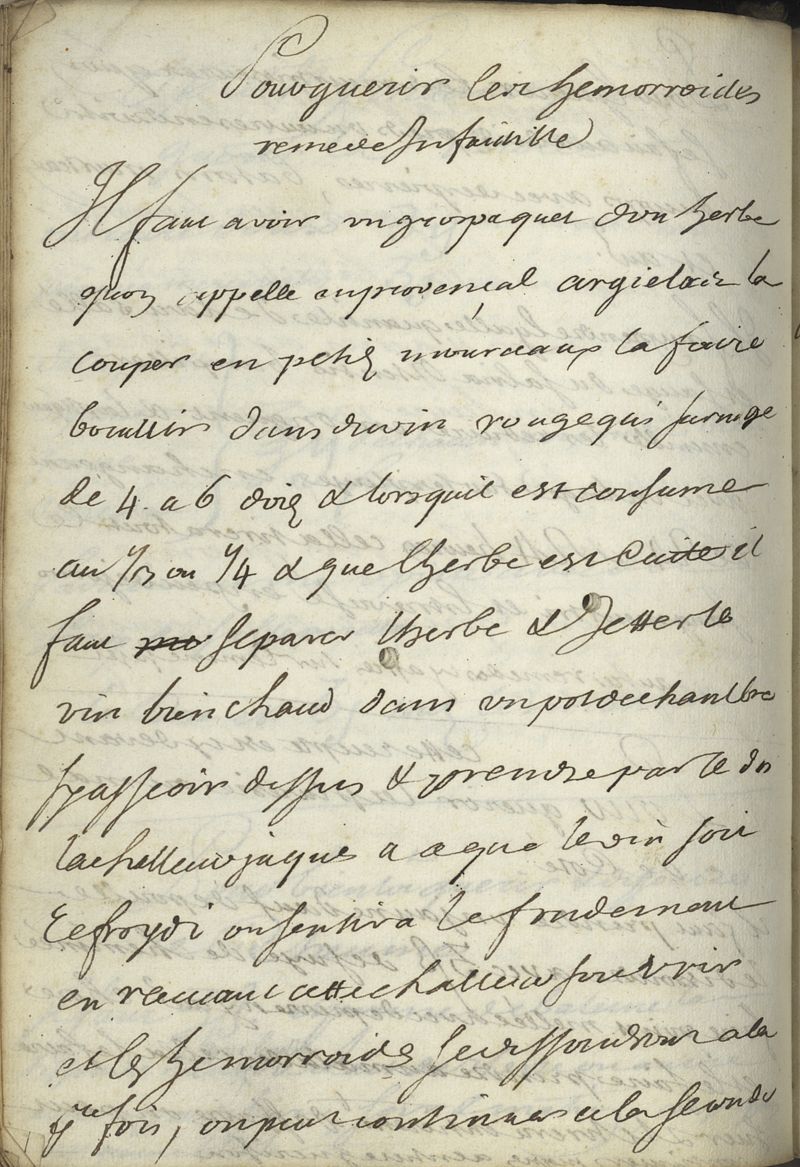 Pour guerir les hemorroides
remede Infaillible
Il faut avoir un gros paquet d'un herbe
quon appelle en provencal argielair la
couper en petis mourceaux la faire
bouillir dans du vin rouge qui surnage
de 4 a 6 doig & lorsquil est consume
au 1/3 ou 1/4 & que lherbe est Cuite il
faut separer lherbe & Jetter le
vin bien chaud dans un pot de chambre
sy asseoir dessus & prendre par le
la challeur juques a ce que le vin soit
Refroydi on sentira le fondement
en recevant cette challeur souvrir
et les hemorroides se dissoudront a la
fois, on peut continuer a la seconde